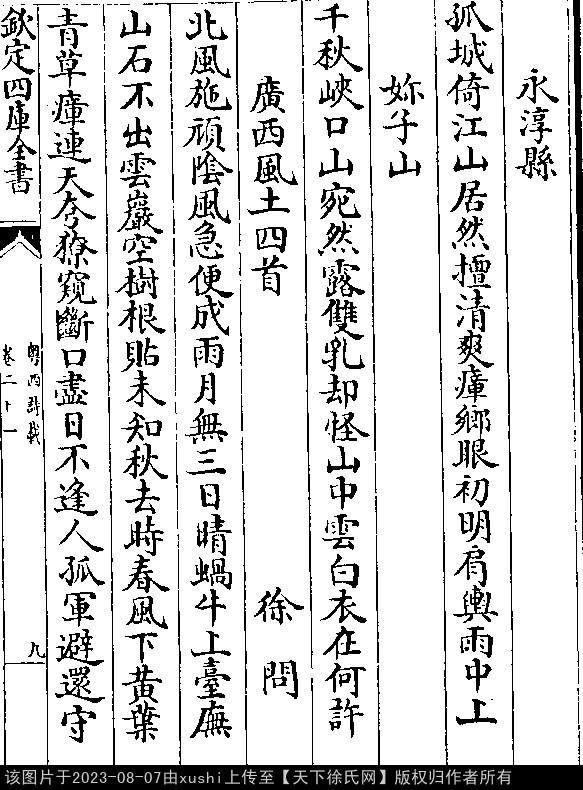 永淳縣
孤城倚江山居然擅清爽瘴鄉眼初明肩輿雨中上
妳子山
千秋峽口山宛然露雙乳却怪山中雲白衣在何許
廣西風土四首 徐問
北風施頑陰風急便成雨月無三日晴蝸牛上臺廡
山石不出雲巖空樹根貼未知秋去時春風下黄葉
青草瘴連天含獠窺斷口盡日不逢人孤軍避還守
欽定四庫全書
粤西詩載
卷二十一
九
该图片于2023-08-07由xushi上传至【天下徐氏网】版权归作者所有